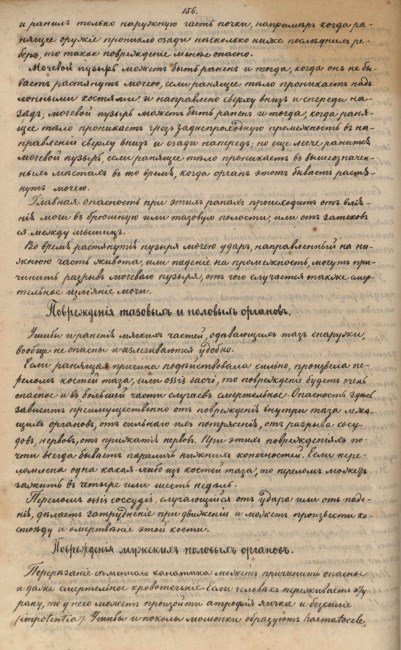 156.
и ранил только наружную часть почки, например когда ра-
нящее орудие проникло сзади несколько ниже последних ре-
бер, то такое повреждение менее опасно.
Мочевой пузырь может быть ранен и тогда, когда он не бы-
вает растянут мочею, если ранящее тело проникает над
лонными костями и направлено сверху вниз и спереди на-
зад; мочевой пузырь может быть ранен и тогда, когда раня-
щее тело проникает чрез заднепроходную промежность в на-
правлении сверху вниз и сзади наперед; но еще легче ранится
мочевой пузырь, если ранящее тело проникает в вышеозначен-
ных местах в то время, когда орган этот бывает растя-
нут мочею.
Главная опасность при этих ранах происходит от влия-
ния мочи в брюшную или тазовую полости, или от затеков
ея между мышцы.
Во время растянутия пузыря мочею удар, направленный на ни-
жнюю часть живота, или падение на промежность могут при-
чинить разрыв мочевого пузыря, от чего случается также смер-
тельное излияние мочи.
Повреждения тазовых и половых органов.
Ушибы и ранения мягких частей, одевающих таз снаружи,
вообще не опасны и излечиваются удобно.
Если ранящая причина подействовала сильно, произвела пе-
релом костей таза, или ossis sacri, то повреждение будет очень
опасное и в большей части случаев смертельное. Опасность здесь
зависит преимущественно от повреждения внутри таза лежа-
щих органов, от сильного их потрясения, от разрыва сосу-
дов, нервов, от прижатия нервов. При этих повреждениях по-
чти всегда бывает паралич нижних конечностей. Если пере-
ломлена одна какая-либо из костей таза, то перелом может
зажить в четыре или шесть недель.
Перелом ossis coccygis, случающийся от удара или от паде-
ния, делает затруднение при движении и может произвести ко-
стоеду и омертвение этой кости.
Повреждения мужских половых органов.
Перерезание семенного канатика может причинить опасное
и даже смертельное кровотечение. Если человек переживает эту
рану, то у него может произойти атрофия яичка и безсилие
(impotentia). Ушибы и уколы мошонки образуют haematocele,